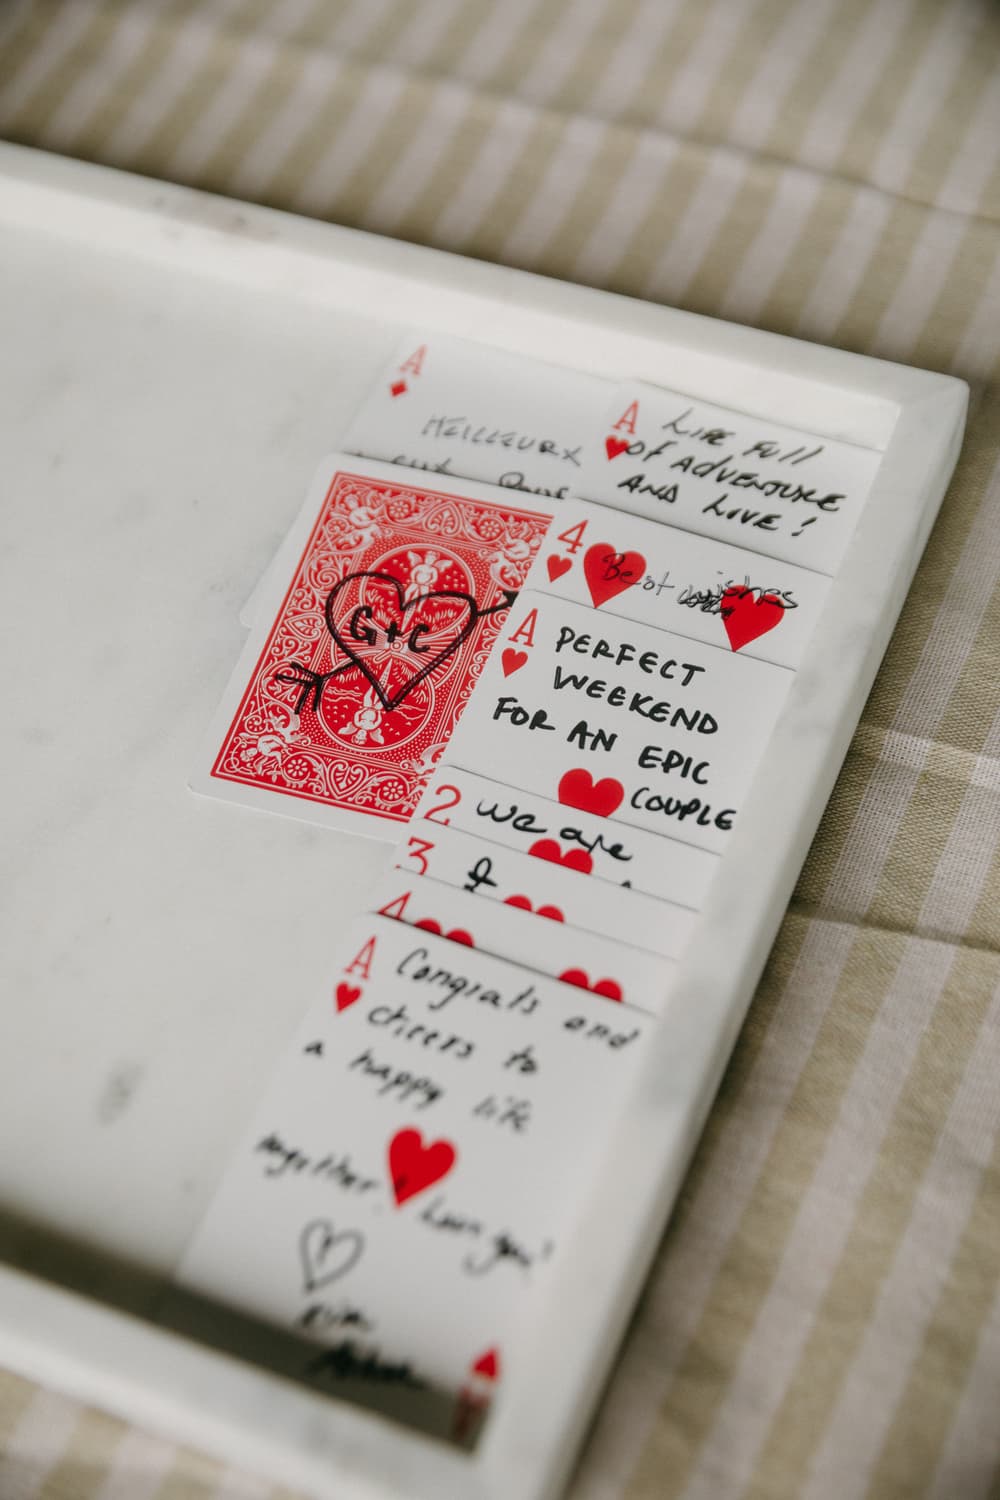 A
MEILLEURX
A
LIFE FULL
OF ADVENTURE
AND LOVE!
4
Best wishes
G+C
A
PERFECT
WEEKEND
FOR AN EPIC
COUPLE
2
we are
3
4
A
Congrats and
cheers to
a happy life
together! Love you!